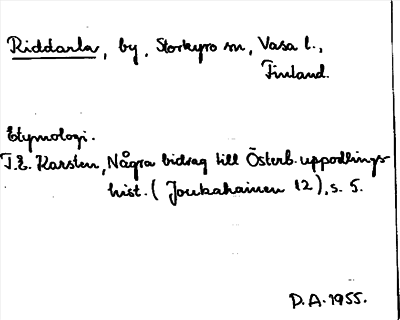 Riddarla, by, Storkyro sn, Vasa l.,
Finland.
Etymologi.
T.E. Karsten, Några bidrag till Österb. uppodlings-
hist. (Joukahainen 12), s. 5.
P.A. 1955.